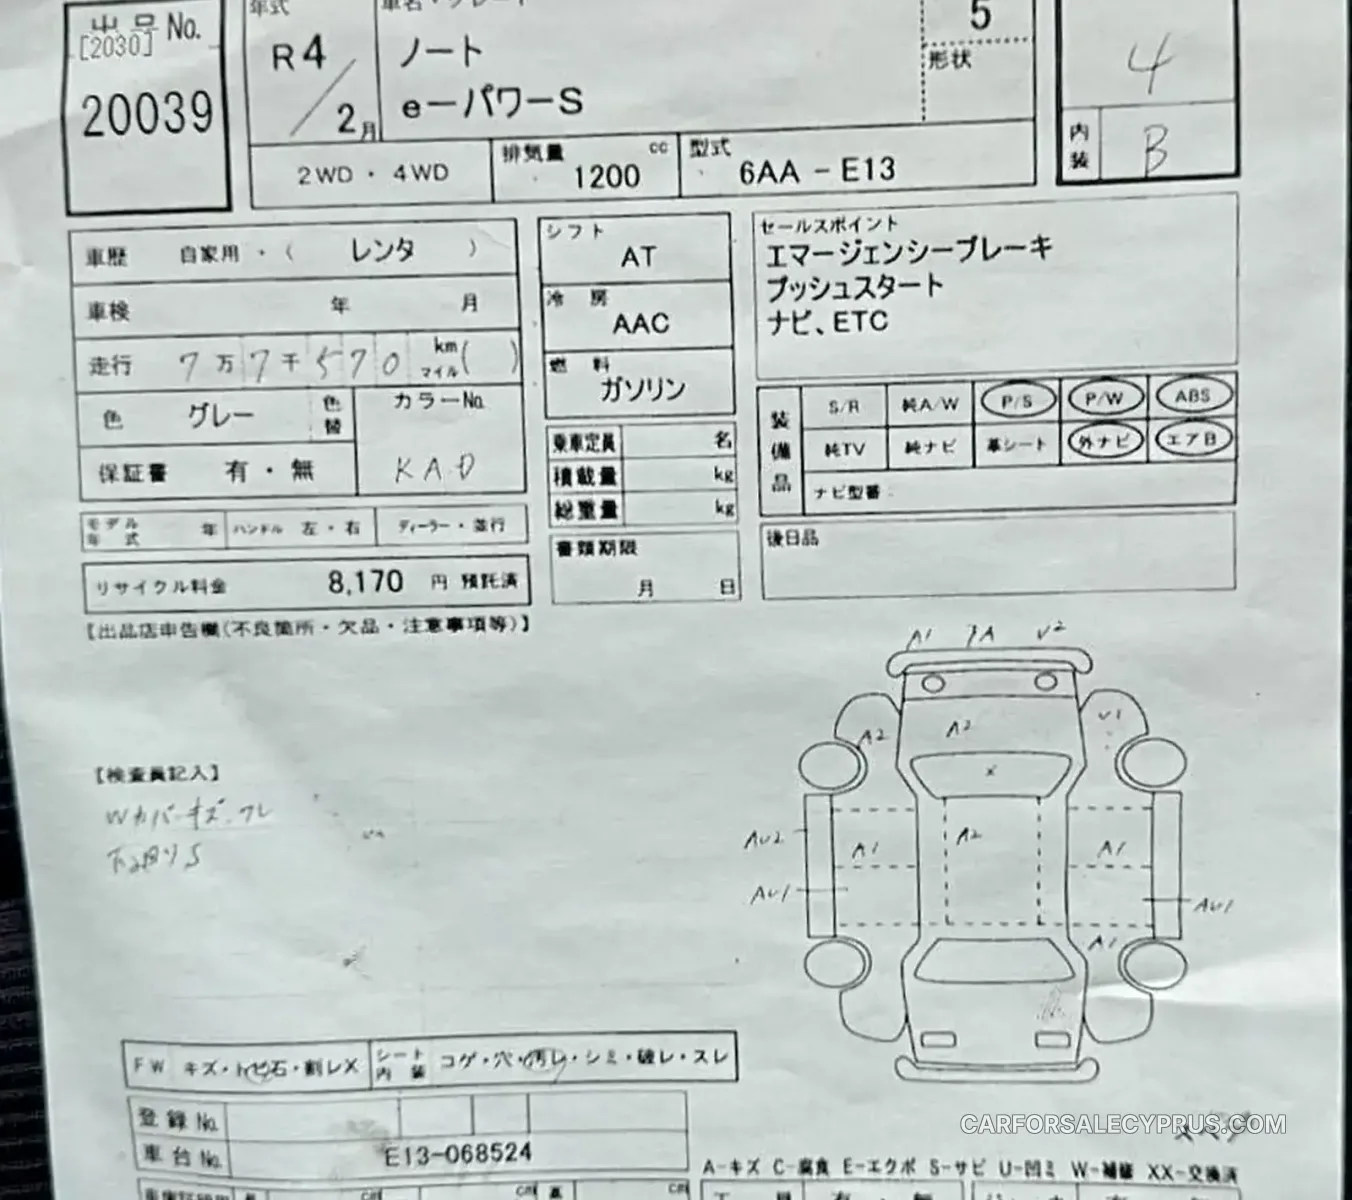 年式
車名・グレード
出品 No.
[2030]
20039
R4
2月
ノート
e-パワーS
5
形状
4
内装 B
2WD・4WD
排気量 1200 cc
型式 6AA-E13
車歴 自家用・( レンタ )
車検 年 月
走行 7万7千570 km マイル( )
色 グレー 色替
カラーNo.
KAD
保証書 有・無
モデル年式 年 ハンドル 左・右 ディーラー・並行
リサイクル料金 8,170 円 預託済
シフト
AT
冷房
AAC
燃料
ガソリン
乗車定員 名
積載量 kg
総重量 kg
書類期限
月 日
セールスポイント
エマージェンシーブレーキ
プッシュスタート
ナビ、ETC
装備品
S/R 純A/W P/S P/W ABS
純TV 純ナビ 革シート 外ナビ エアB
ナビ型番:
後日品
【出品店申告欄(不良箇所・欠品・注意事項等)】
A1 U2
A2 A2 U1
X
AU2 A1 A2 A1
AU1 AU1
A1
【検査員記入】
Wカバーキズ.ワレ
下廻りS
FW キズ・トビ石・割レX
シート内装 コゲ・穴・汚レ・シミ・破レ・スレ
登録No.
車台No. E13-068524
CARFORSALECYPRUS.COM
A-キズ C-腐食 E-エクボ S-サビ U-凹ミ W-補修 XX-交換済
cm cm cm